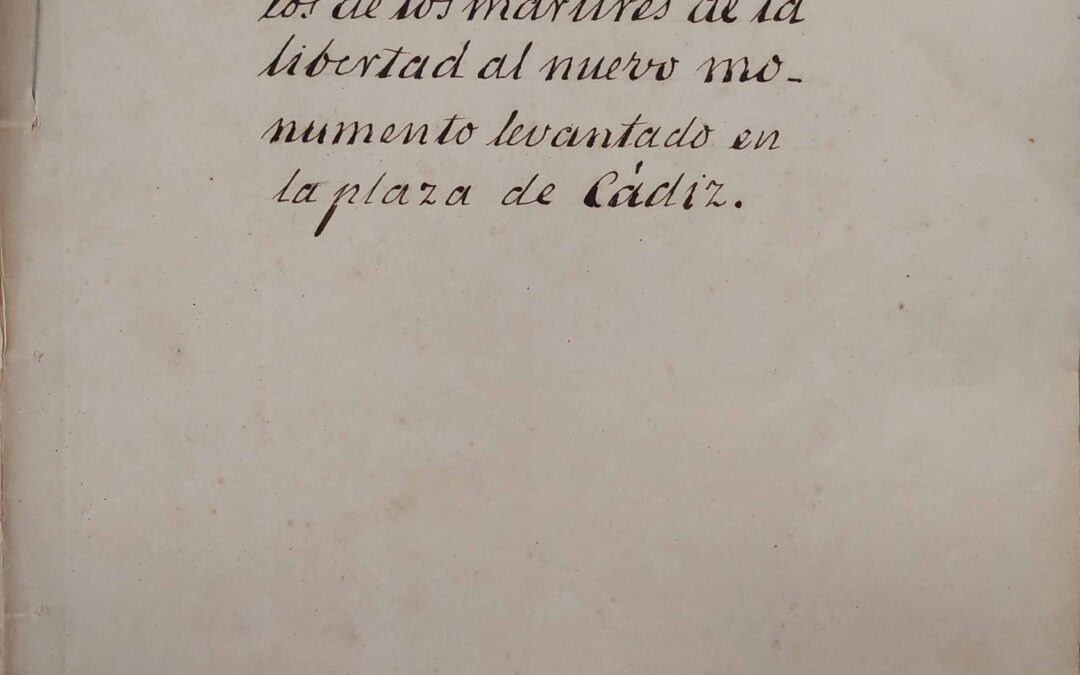 tos de los martires de la
libertad al nuevo mo-
numento levantado en
la plaza de Cádiz.